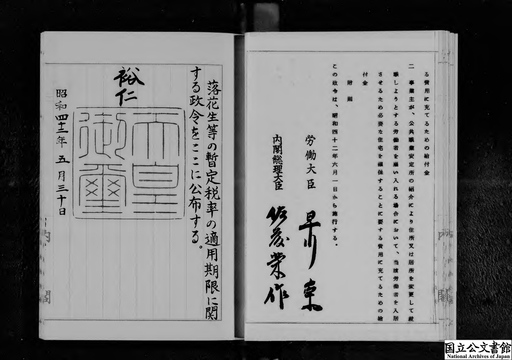 る費用に充てるための給付金
二 事業主が、公共職業安定所の紹介により住所又は居所を変更して就
職しようとする労働者を雇い入れる場合において、当該労働者を入居
させるため必要な住宅を確保することに要する費用に充てるための給
付金
附則
この政令は、昭和四十二年六月一日から施行する。
労働大臣
内閣総理大臣 佐藤栄作
落花生等の暫定税率の適用期限に関
する政令をここに公布する。
裕仁
天皇
御璽
昭和四十二年五月三十日
国立公文書館
National Archives of Japan